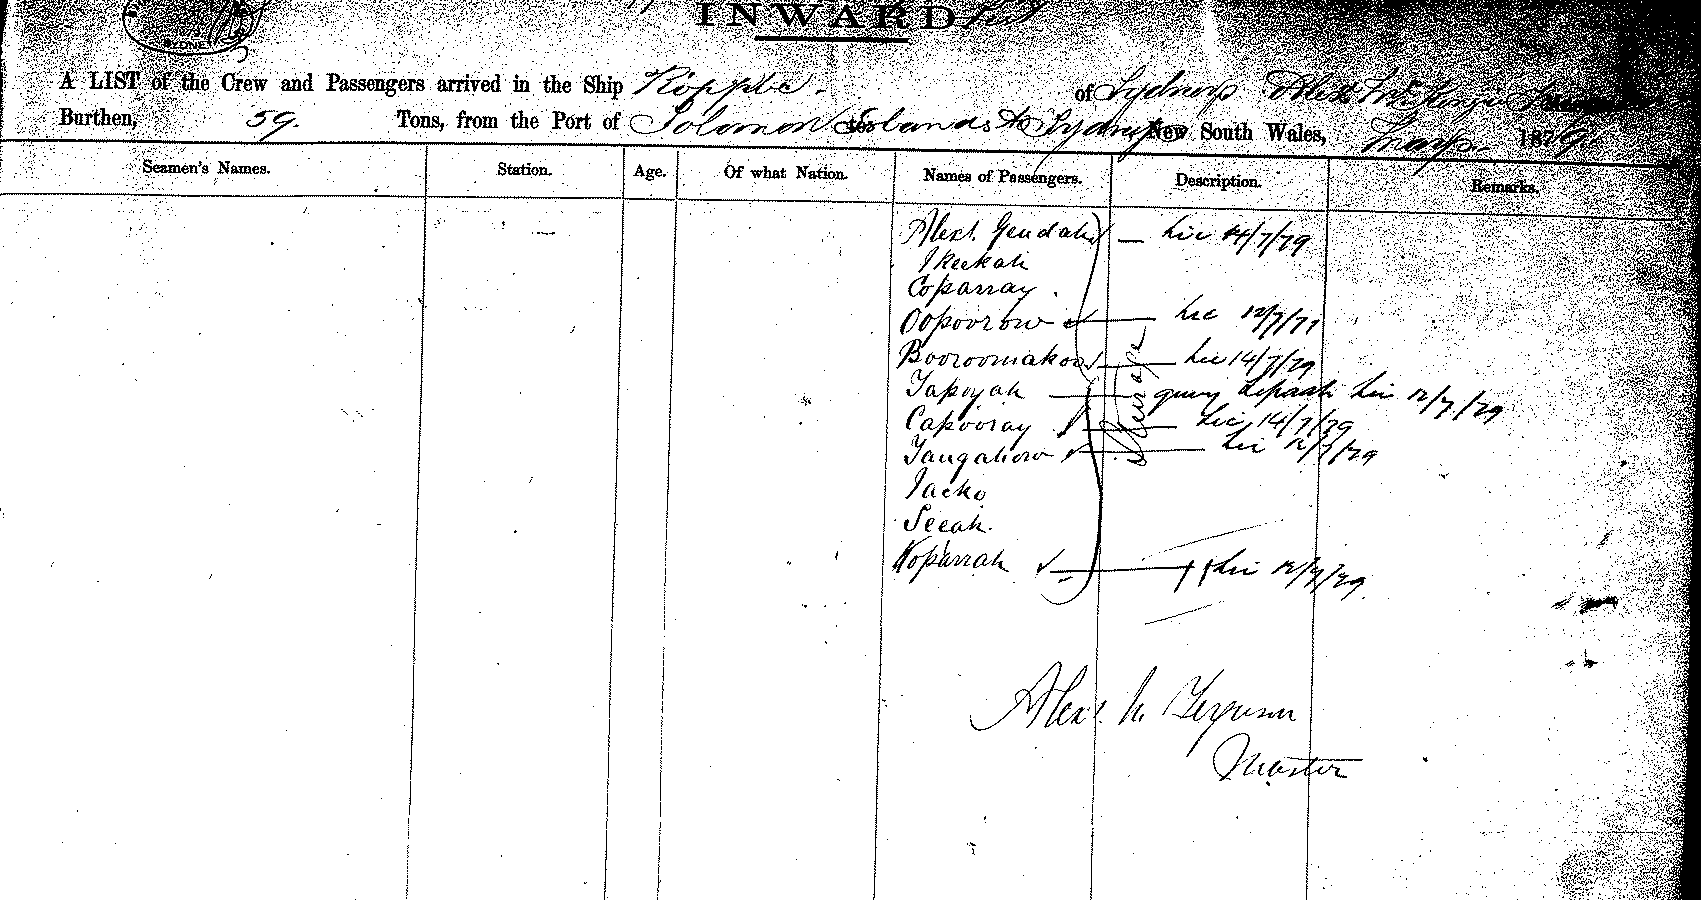 INWARD
SYDNEY
A LIST of the Crew and Passengers arrived in the Ship Ripple. of Sydney
Burthen, 59. Tons, from the Port of Solomon Islands to Sydney New South Wales, 1879
Seamen's Names. Station. Age. Of what Nation. Names of Passengers. Description. Remarks.
Alext. — Lic 14/7/79
Ikeekah
Coparray
Oopoorow — Lic 12/7/79
Booroomakoo — Lic 14/7/79
Tapoyah — query Lic 12/7/79
Capooray — Lic 14/7/79
Taugahow — Lic 12/7/79
Jacko
Seeah.
Koparrah — Lic 12/7/79
Steerage
Alexr. M. Ferguson
Master